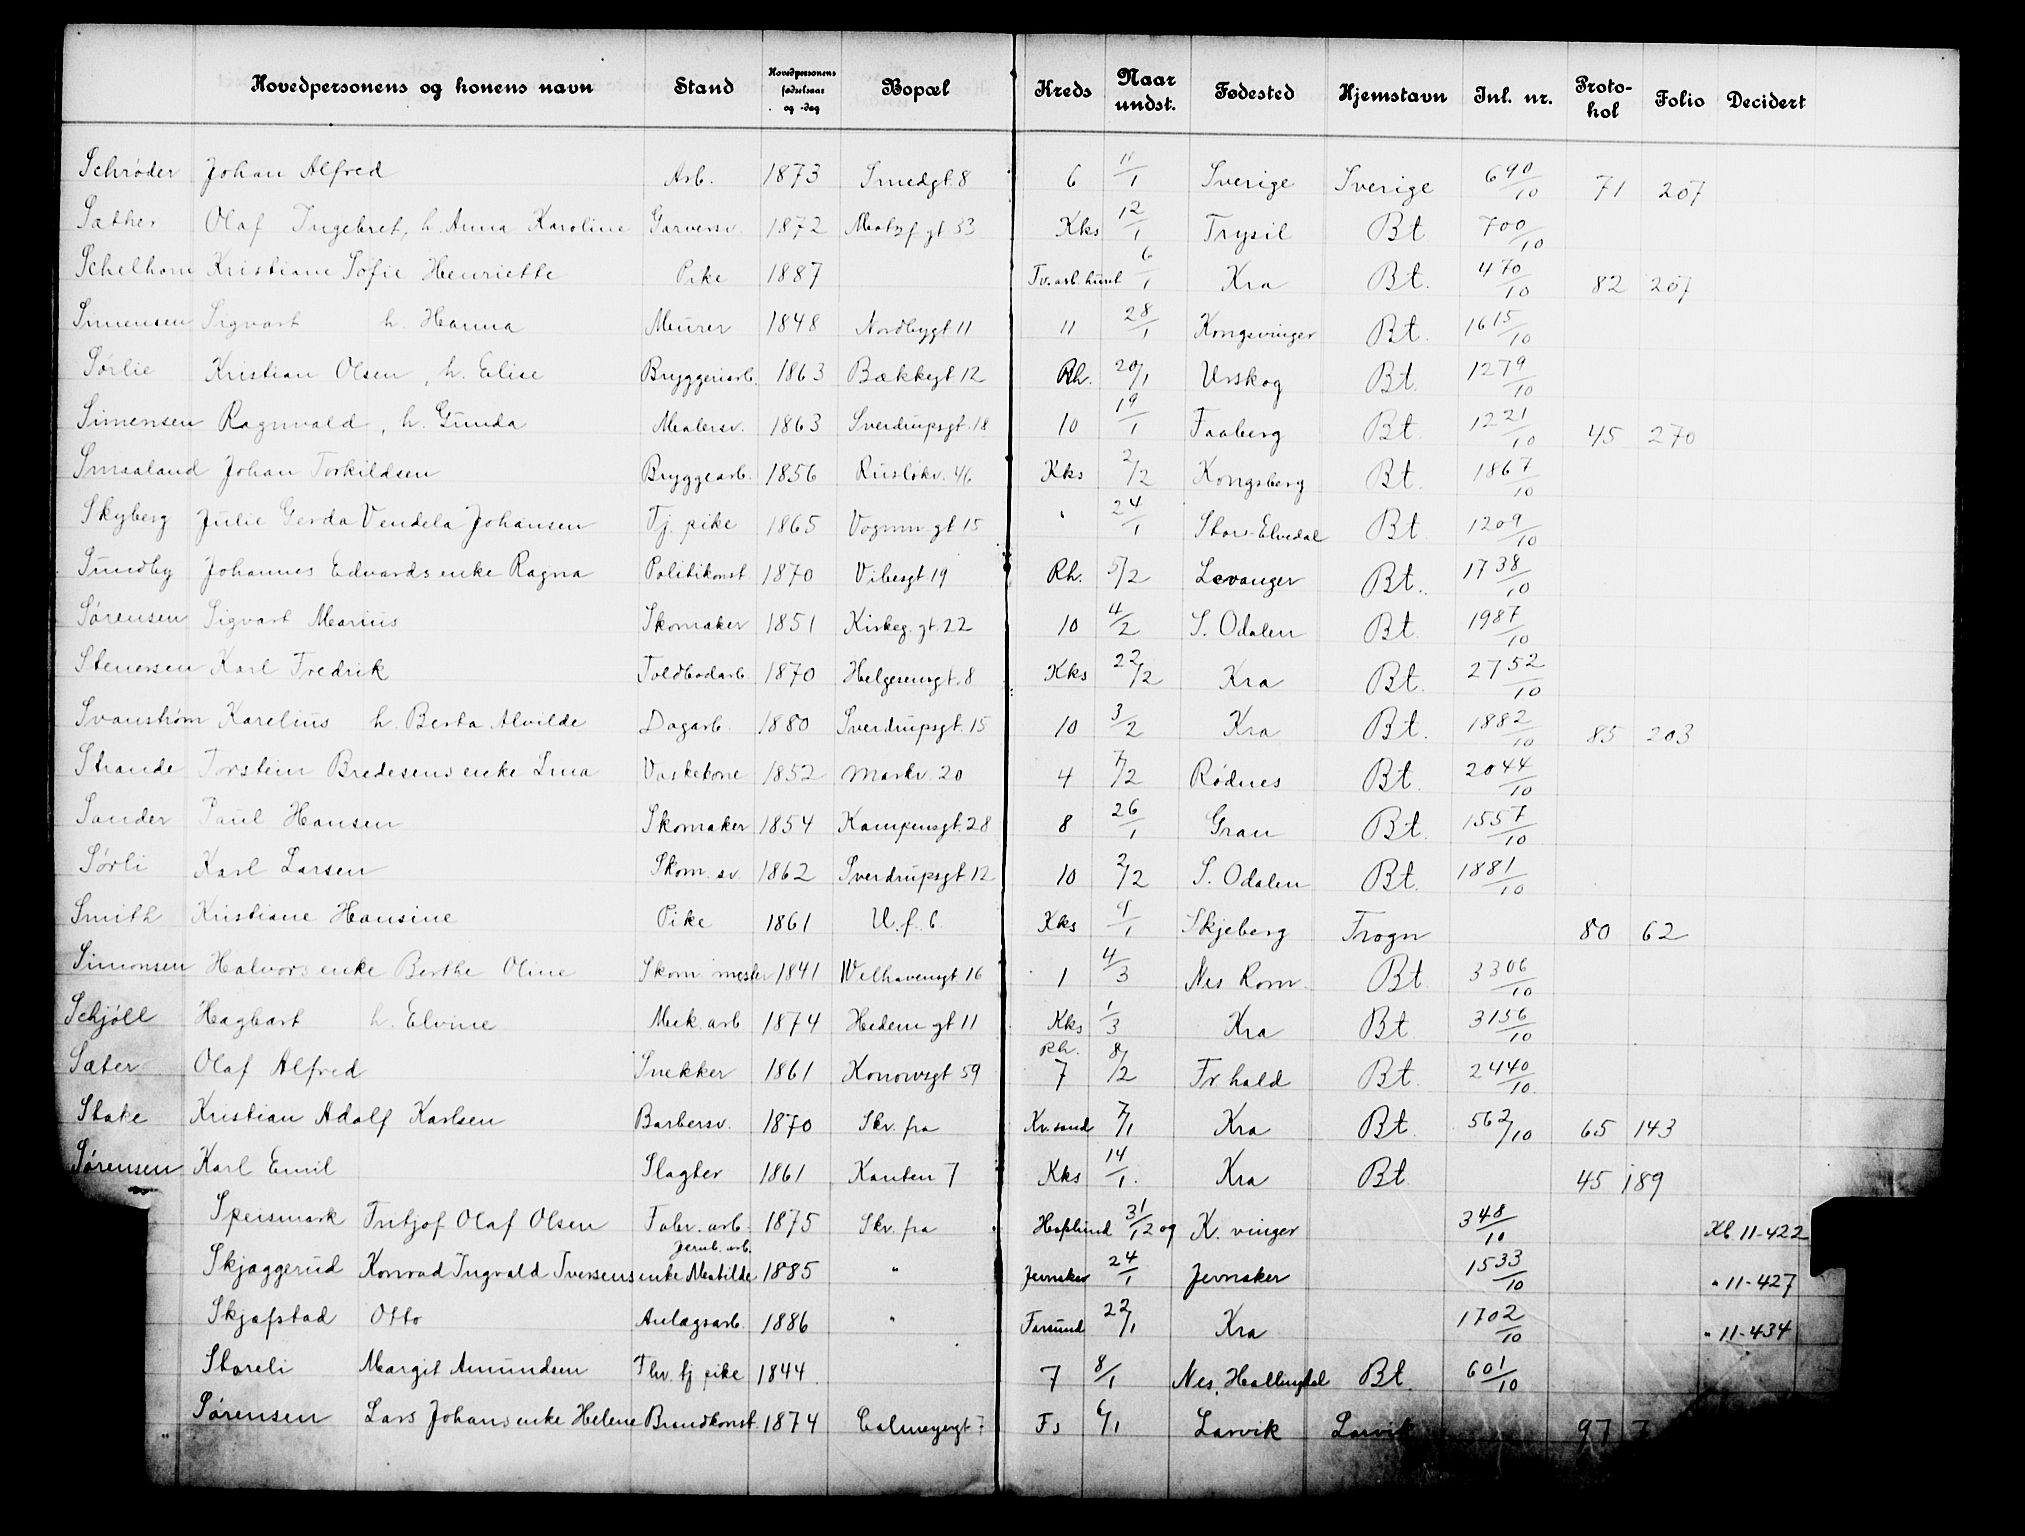 Hovedpersonens og konens navn Stand Hovedpersonens fødselsaar og -dag Bopæl Kreds Naar undst. Fødested Hjemstavn Inl. nr. Protokol Folio Decidert
Schrøder Johan Alfred Arb. 1873 Smedgt. 8 6 11/1 Sverige Sverige 690/10 71 207
Sæther Olaf Ingebret, h. Anna Karoline Garversv. 1872 33 Kks 12/1 Trysil Bt. 700/10
Schelhorn Kristiane Sofie Henriette Pike 1887 Tv. arb. huset 6/1 Kra Bt. 470/10 82 207
Simensen Sigvart h. Hanna Murer 1848 Nordbygt 11 11 28/1 Kongsvinger Bt. 1615/10
Sørlie Kristian Olsen, h. Elise Bryggeriarb. 1863 Bækkegt 12 Rh. 20/1 Urskog Bt. 1279/10
Simensen Ragnvald, h. Gunda Malersv. 1863 Sverdrupsgt. 18 10 19/1 Faaberg Bt. 1221/10 45 270
Smaaland Johan Torkildsen Bryggearb. 1856 Rusløkv. 46 Kks 2/2 Kongsberg Bt. 1867/10
Skyberg Julie Gerda Vendela Johansen Tj. pike 1865 Vognm. gt 15 " 24/1 Stor-Elvedal Bt. 1209/10
Sundby Johannes Edvards enke Ragna Politikonst 1870 Vibesgt 19 Rh. 5/2 Levanger Bt. 1738/10
Sørensen Sigvart Marius Skomaker 1851 Kirkeg. gt. 22 10 4/2 S. Odalen Bt. 1987/10
Stenersen Karl Fredrik Toldbodarb 1870 Helgesensgt. 8 Kks 22/2 Kra Bt. 2752/10
Svanstrøm Karelius h. Berta Alvilde Dagarb. 1880 Sverdrupsgt. 15 10 3/2 Kra Bt. 1882/10 85 203
Strande Torstein Bredesens enke Lina Vaskekone 1852 Markv. 20 4 7/2 Rødnes Bt. 2044/10
Sander Paul Hansen Skomaker 1854 Kampensgt. 28 8 26/1 Gran Bt. 1557/10
Sørli Karl Larsen Skom. sv. 1862 Sverdrupsgt 12 10 2/2 S. Odalen Bt. 1881/10
Smith Kristiane Hansine Pike 1861 U. f. b. Kks 9/1 Skjeberg Frogn 80 62
Simonsen Halvors enke Berthe Oline Skom. mester 1841 Welhavensgt 16 1 4/3 Nes Rom. Bt. 3306/10
Schjøll Hagbart h. Elvine Mek. arb 1874 Hedem gt 11 Kks 1/3 Kra Bt. 3156/10
Sæter Olaf Alfred Snekker 1861 Konowsgt 59 Rh. 7 8/2 Fr hald Bt. 2440/10
Stake Kristian Adolf Karlsen Barbersv. 1870 Skr. fra Kr. sand 7/1 Kra Bt. 562/10 65 143
Sørensen Karl Emil Slagter 1861 Kanten 7 Kks 14/1. Kra Bt. 45 189
Speismark Fritjof Olaf Olsen Fabr. arb. 1875 Skr. fra 31/12 09 K. vinger 348/10 Kb. 11-422
Skjæggerud Konrad Ingvald Iversens enke Matilde Jernb. arb. 1885 " Jevnaker 24/1 Jevnaker 1533/10 " 11-427
Skjafstad Otto Anlægsarb. 1886 " Farsund 22/1 Kra 1702/10 " 11-434
Storeli Margit Amundsen Fhv. tj pike 1844. 7 8/1 Nes, Hallingdal Bt. 601/10
Sørensen Lars Johans enke Helene Brandkonst. 1874 Calmeyergt 7 Fs 6/1 Larvik Larvik 97 7